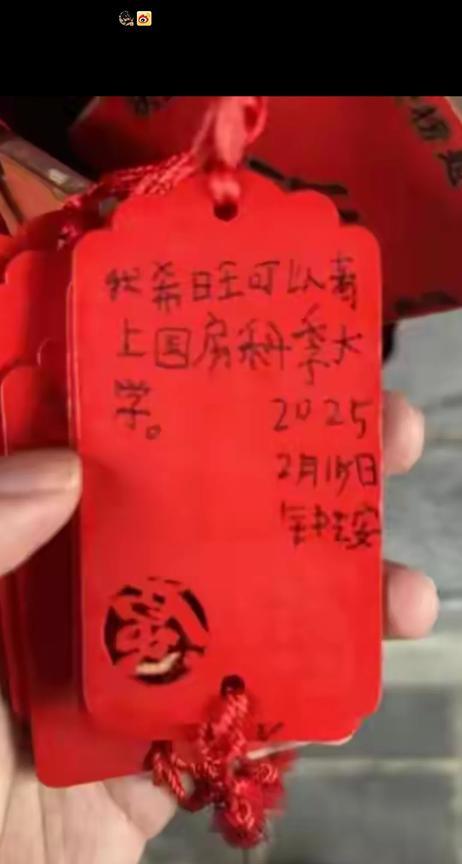 希旺可以考
上国房科季大
学。
2025
2月15日
钟安